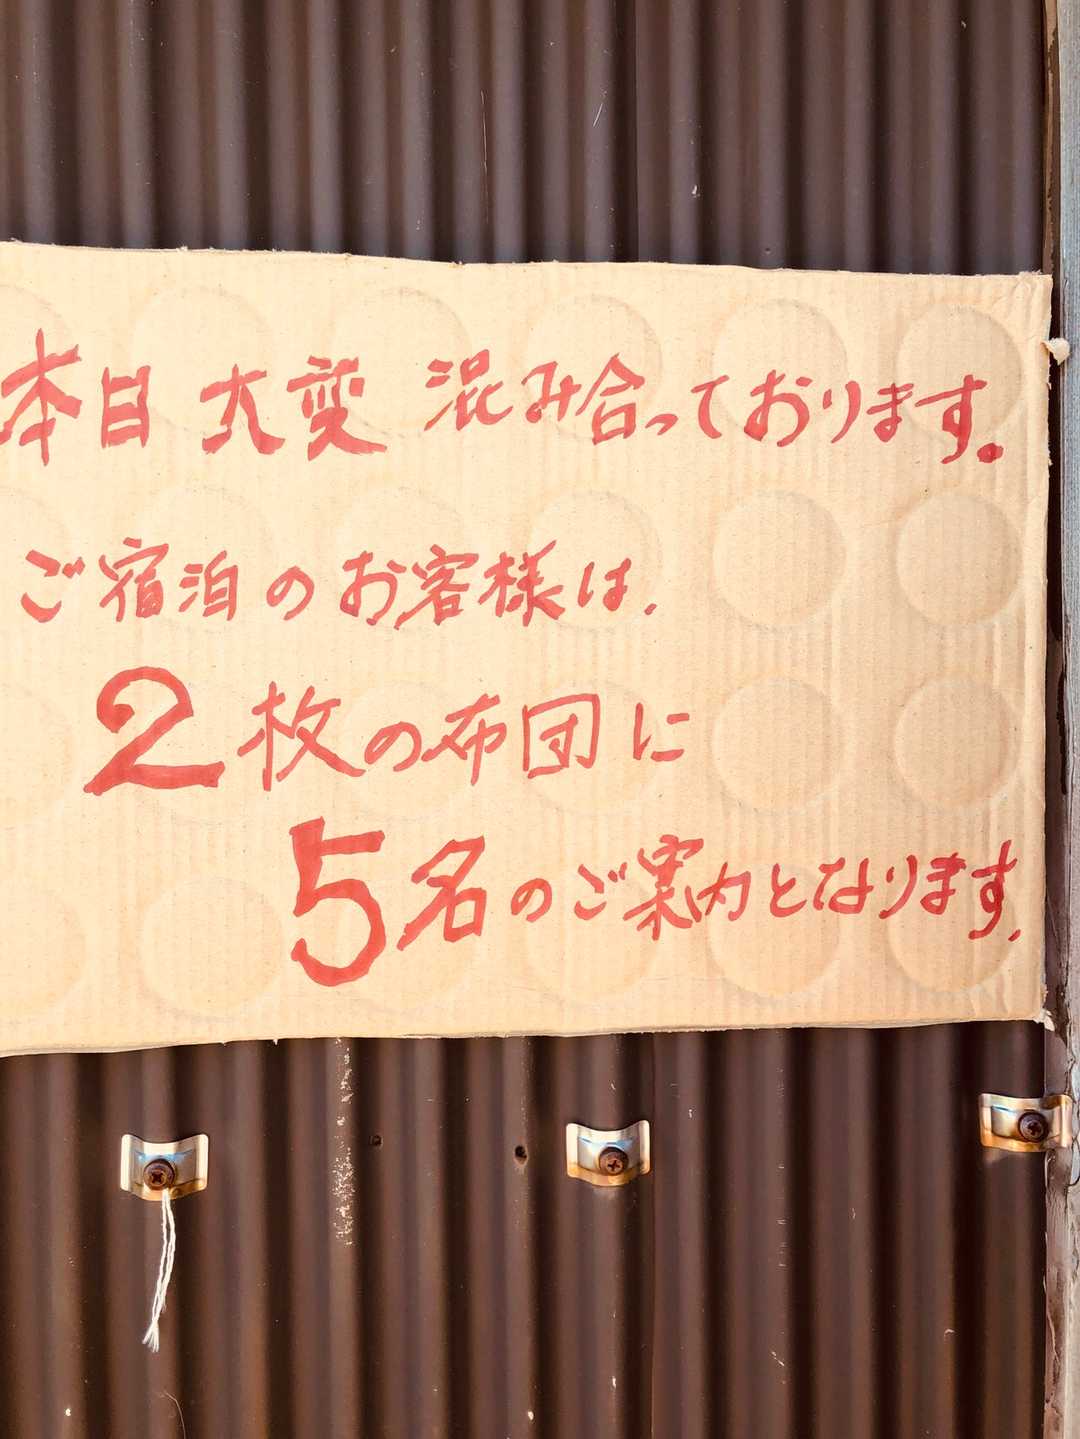 本日 大変 混み合っております。
ご宿泊のお客様は、
2枚の布団に
5名のご案内となります、